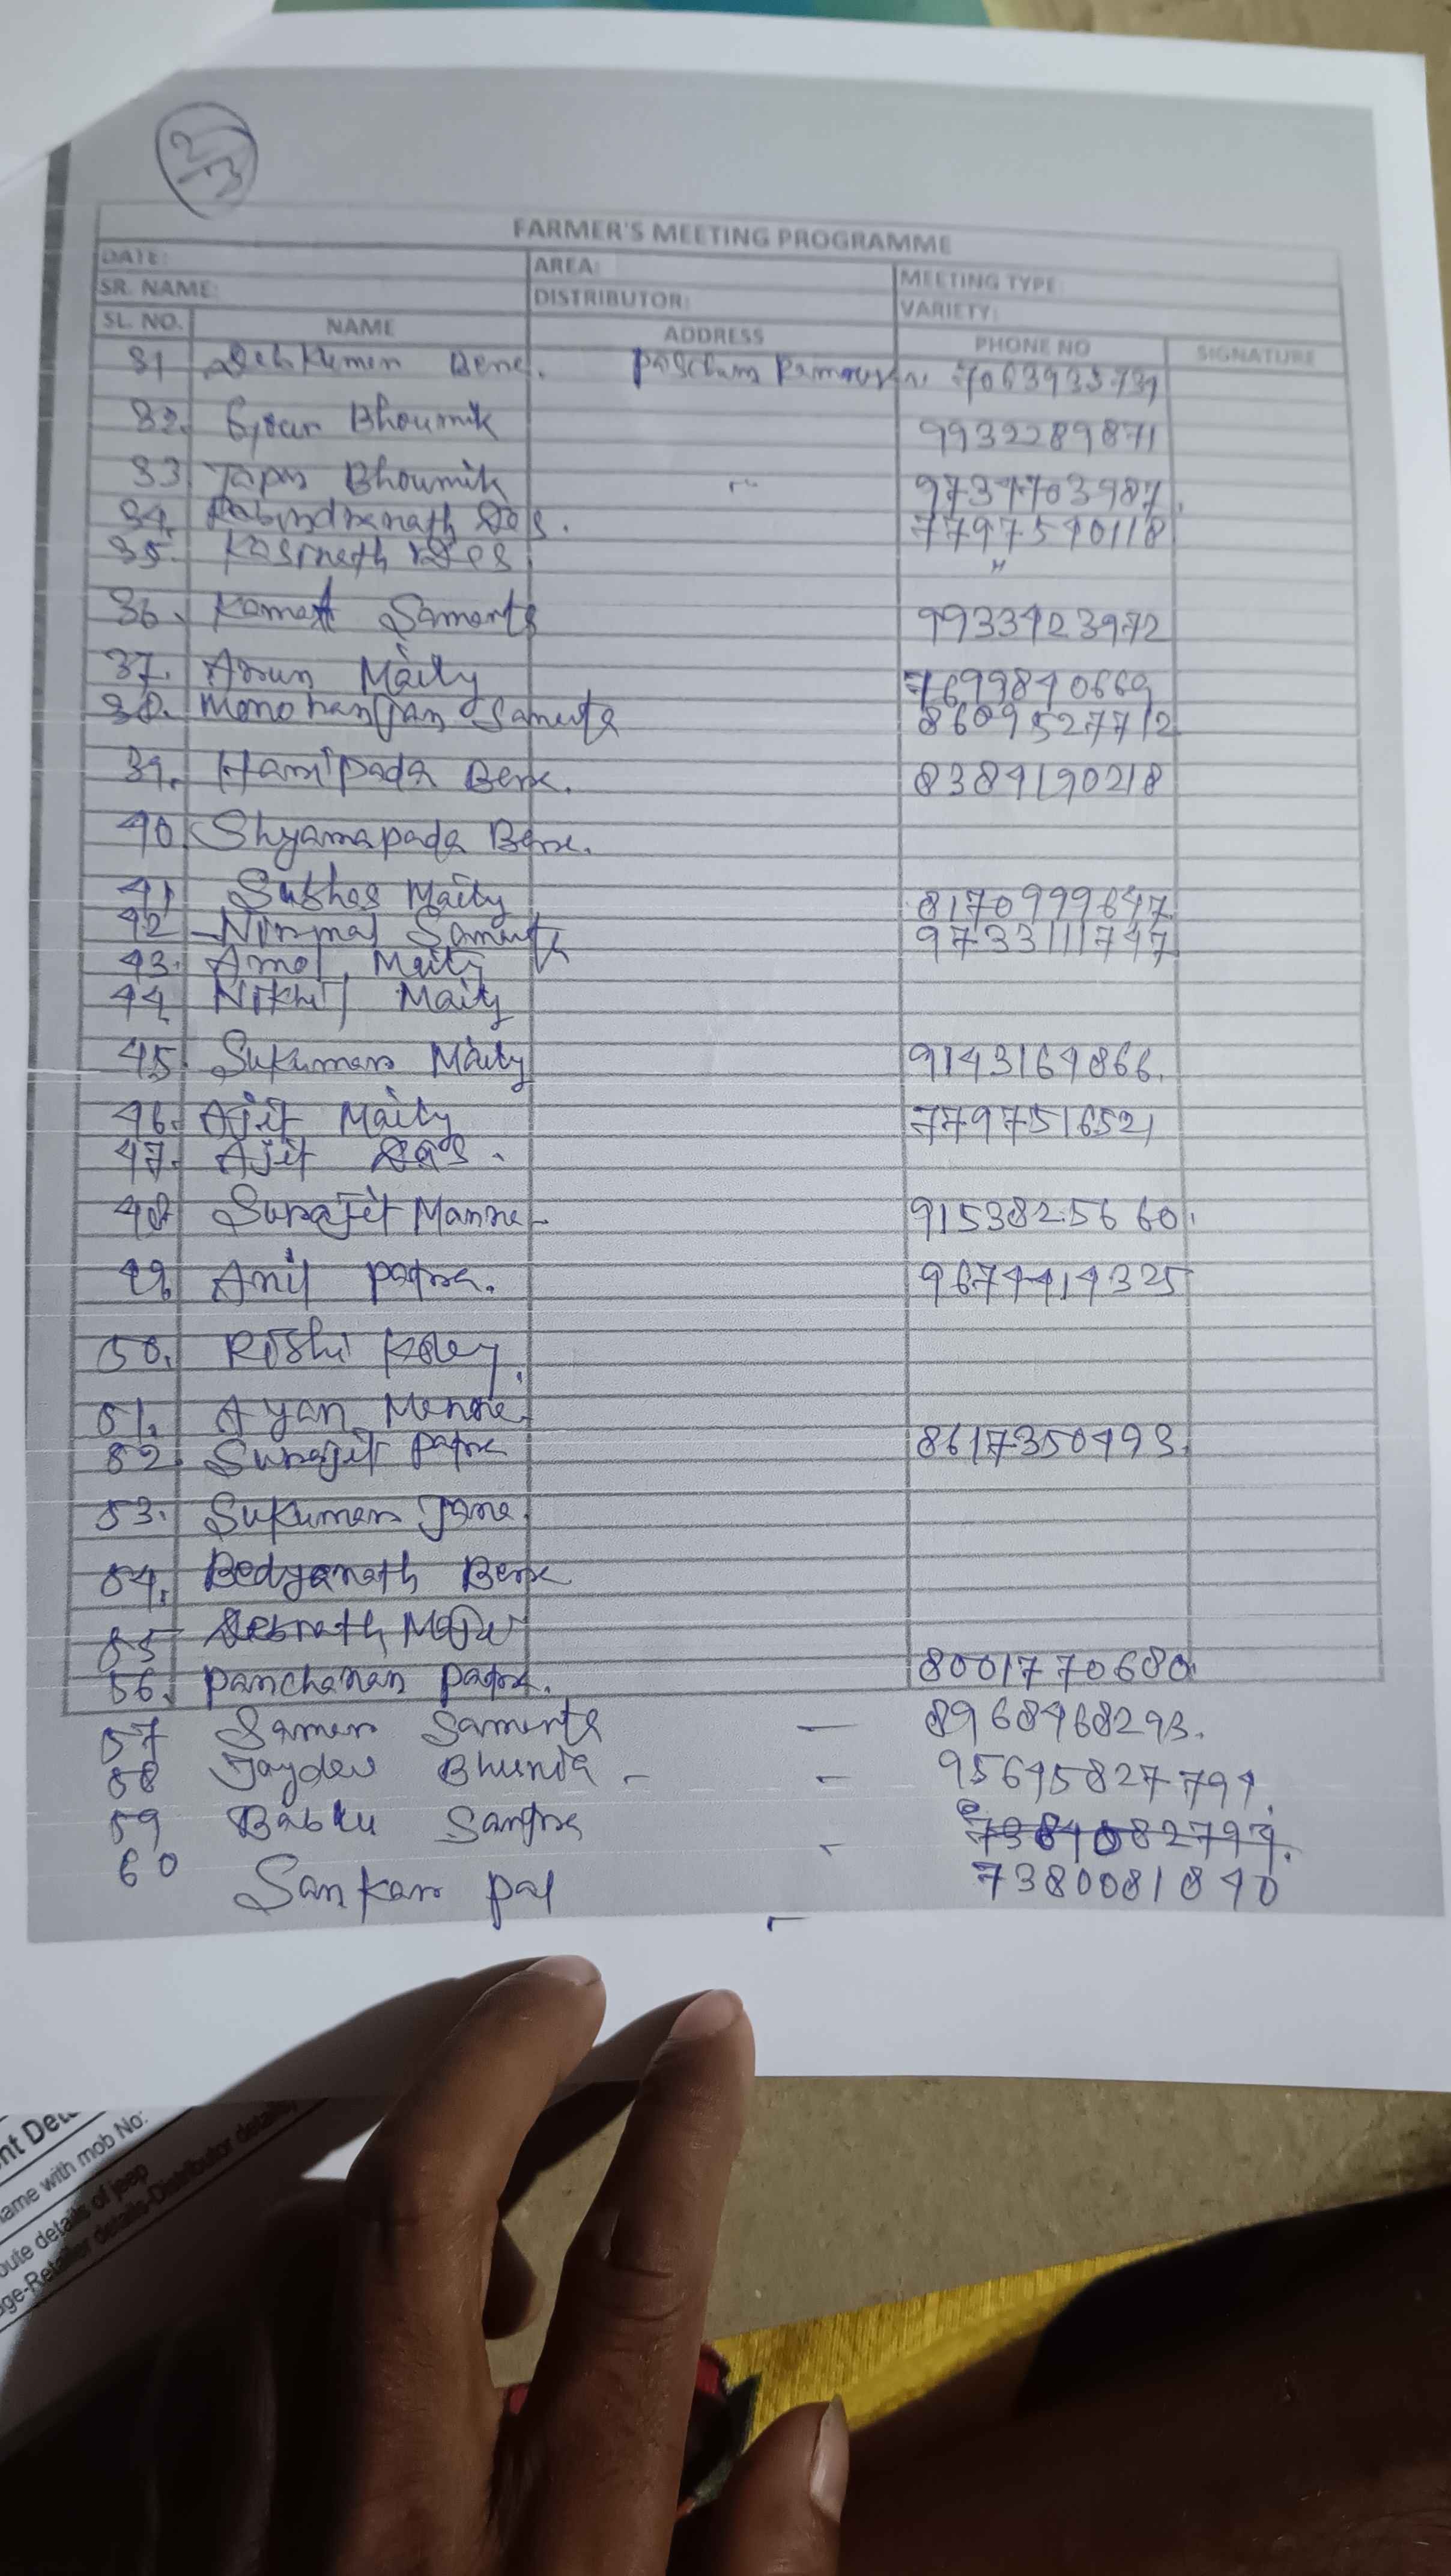 2/3
FARMER'S MEETING PROGRAMME
DATE: AREA: MEETING TYPE
SR. NAME: DISTRIBUTOR: VARIETY:
SL. NO. NAME ADDRESS PHONE NO SIGNATURE
31 Paschim 7063933731
32. Bhoumik 9932289871
33 Tapas Bhoumik " 9734703987
34. Rabindranath Das. 7797540118
35. Kasinath Das "
36. Samanta 9933423972
37. Arun Maity 7699840669
38. Monoranjan Samanta 8609527712
39. Haripada Bera. 8384190218
40. Shyamapada Bera.
41 Subhas Maity 8170999647
42 Nirmal Samanta 9733111747
43. Amol Maity
44 Nikhil Maity
45 Sukumar Maity 9143164866.
46. Ajit Maity 7797516521
47. Ajit Das.
48 Surajit Manna 9153825660
49. Anil Patra. 9674414325
50. Rishi Koley
51. Ayan Manna
52. Surajit Patra 8617350493
53. Sukumar Jana
54. Bedyanath Bera
55 Debnath
56. Panchanan Patra. 8001770680
57 Samar Samanta — 8968468293.
58 Jaydev Bhunia - - 95645827794
59 Bablu Santra -
60 Sankar Pal - 7380081840
nt Det
ame with mob No:
oute details of jeep
ge-Retailer details-Distributor details